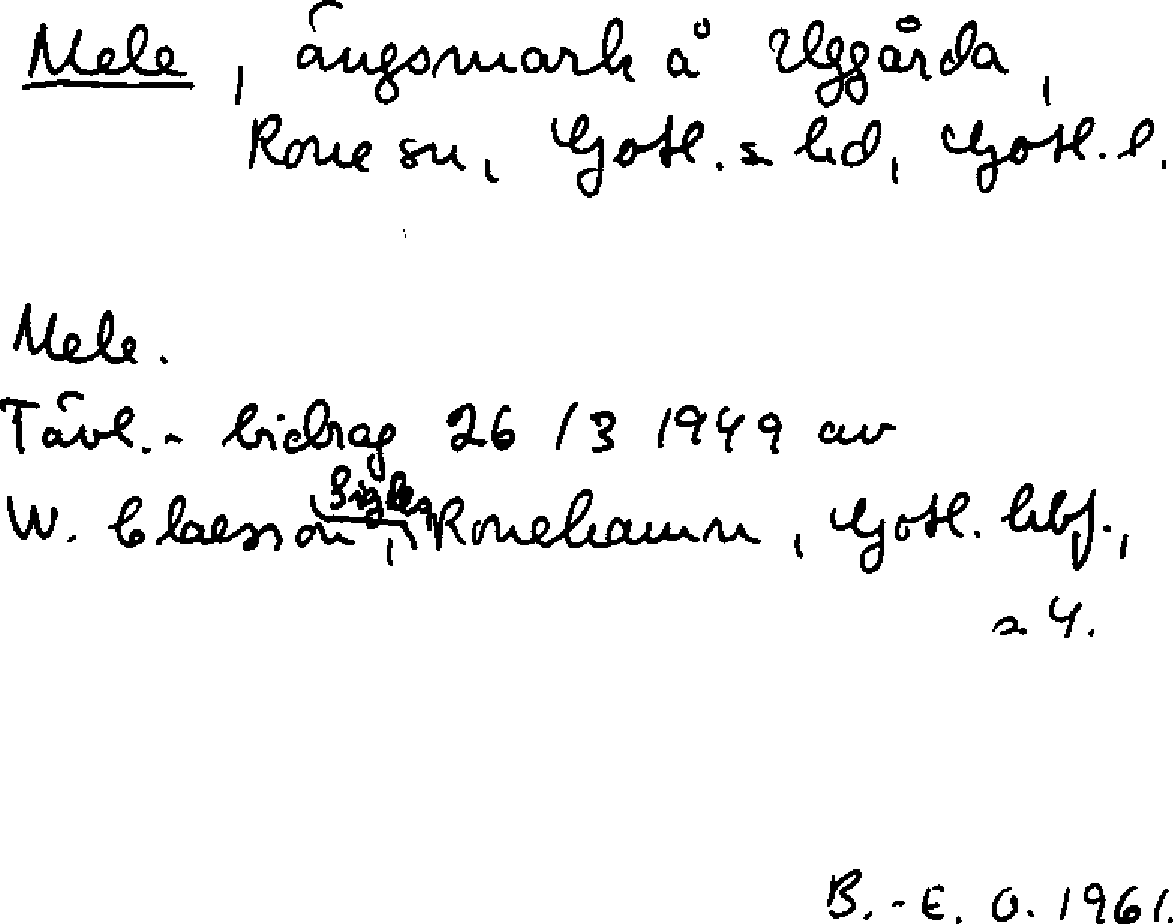 Mele, ängsmark å Uggårda,
Rone sn, Gotl. s hd, Gotl. l.
Mele.
Tävl.- bidrag 26/3 1949 av
W. Claesson, Ronehamn, Gotl. hbf.,
s 4.
B.-E. O. 1961.